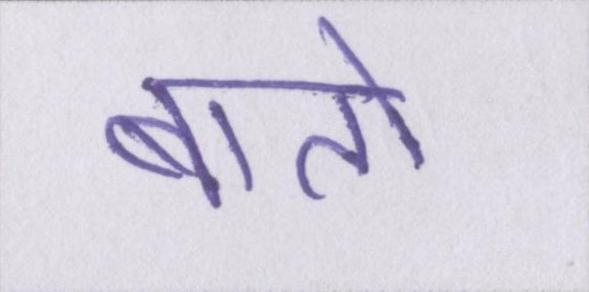 बातो